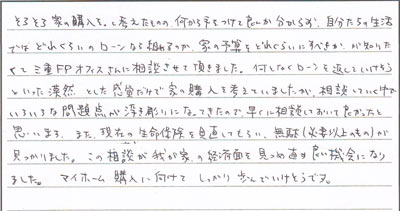 そろそろ家の購入を。と考えたものの、何から手をつけて良いか分からず、自分たちの生活
ではどれくらいのローンなら組めるのか、家の予算をどれくらいにすべきか、が知りたく
て三重FPオフィスさんに相談させて頂きました。何となくローンを返していけそう
といった漠然とした感覚だけで家の購入を考えていましたが、相談していく中で
いろいろな問題点が浮き彫りになってきたので、早くに相談しておいて良かったと
思います。また、現在の生命保険を見直してもらい、無駄(必要以上のもの)が
見つかりました。この相談が我が家の経済面を見つめ直す良い機会になり
ました。マイホーム購入に向けてしっかり歩んでいけそうです。